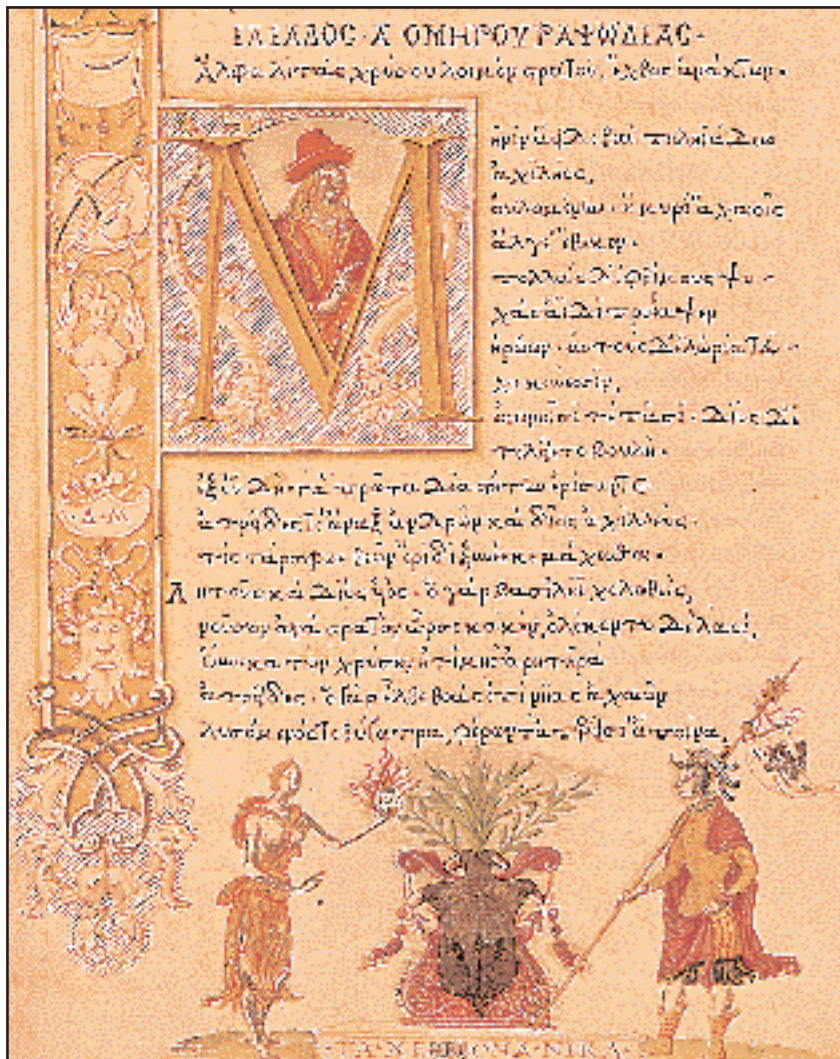 ΙΛΙΑΔΟΣ · Α ΟΜΗΡΟΥ ΡΑΨΩΔΙΑΣ ·
Ἄλφα λιτὰς χρύσου λοιμὸν στρατοῦ, ἔχθος ἀνάκτων ·
Μῆνιν ἄειδε θεὰ πηληϊάδεω
ἀχιλῆος,
οὐλομένην · ἣ μυρί' ἀχαιοῖς
ἄλγε' ἔθηκεν ·
πολλὰς δ' ἰφθίμους ψυ-
χὰς ἄϊδι προΐαψεν
ἡρώων · αὐτοὺς δ' ἑλώρια τεῦ-
χε κύνεσσιν,
οἰωνοῖσί τε πᾶσι · Διὸς δ' ἐ
τελείετο βουλή ·
ἐξ οὗ δὴ τὰ πρῶτα διαστήτην ἐρίσαντε
ἀτρείδης τε ἄναξ ἀνδρῶν καὶ δῖος ἀχιλλεύς ·
τίς τάρ σφωε θεῶν ἔριδι ξυνέηκε μάχεσθαι ·
Λητοῦς καὶ Διὸς υἱός · ὁ γὰρ βασιλῆϊ χολωθεὶς,
νοῦσον ἀνὰ στρατὸν ὦρσε κακήν, ὀλέκοντο δὲ λαοί,
οὕνεκα τὸν χρύσην ἠτίμησ' ἀρητῆρα
ἀτρείδης · ὁ γὰρ ἦλθε θοὰς ἐπὶ νῆας ἀχαιῶν
λυσόμενός τε θύγατρα, φέρων τ' ἀπερείσι' ἄποινα,
· Δ · Μ
ΤΑ ΧΕΡΕΙΟΝΑ · ΝΙΚΑ ·